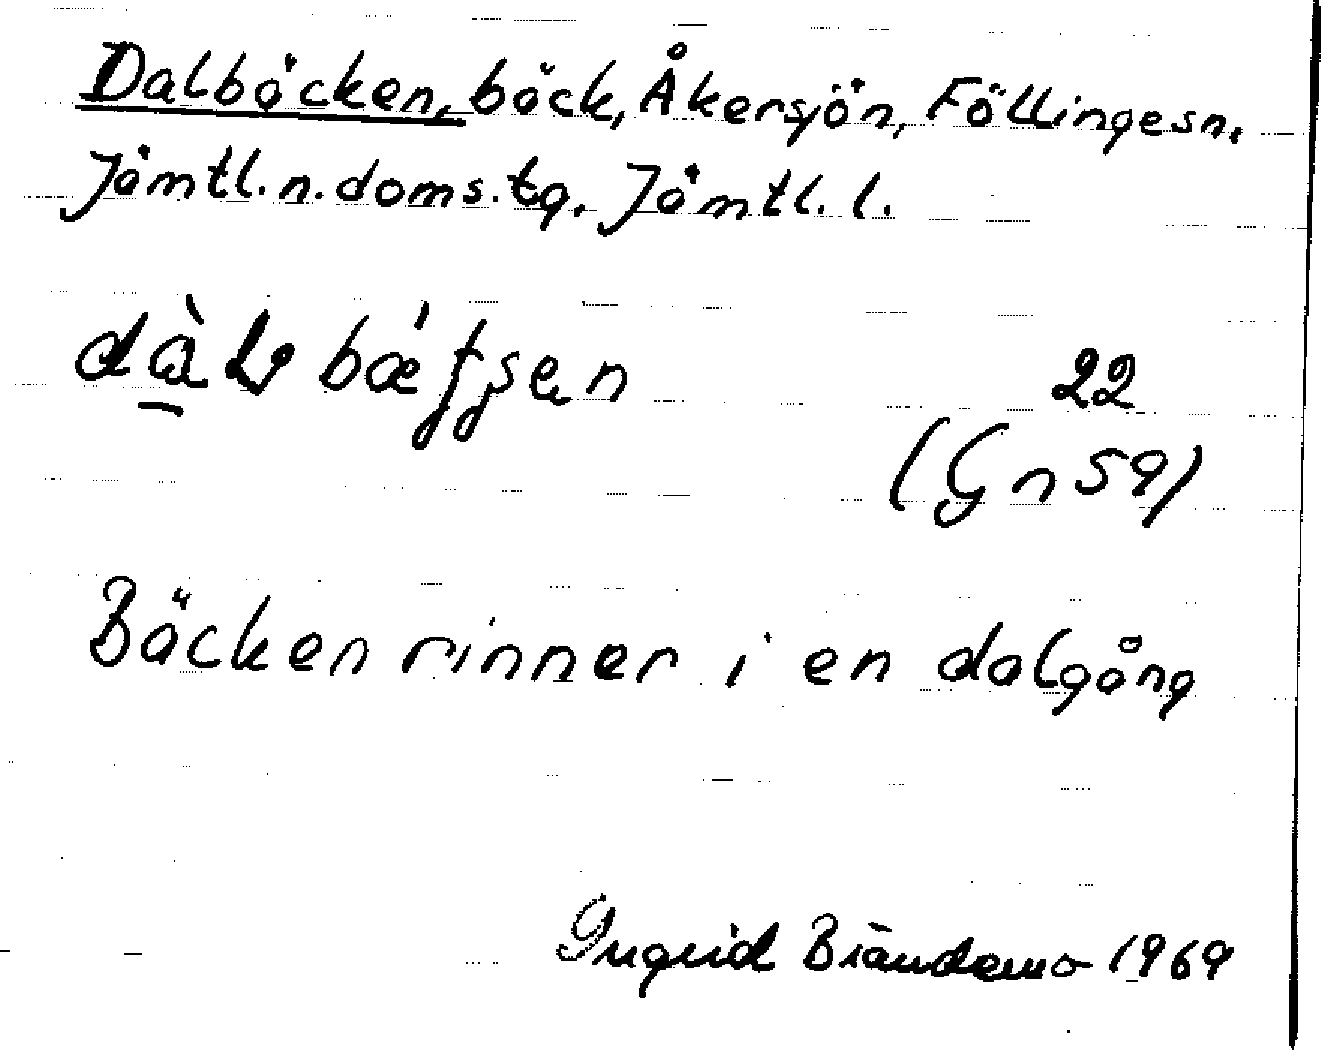 Dalbäcken, bäck, Åkersjön, Föllingesn.
Jämtl. n. doms. tg. Jämtl. l.
22
(Gn 59)
Bäcken rinner i en dalgång
Ingrid Brändemo 1969